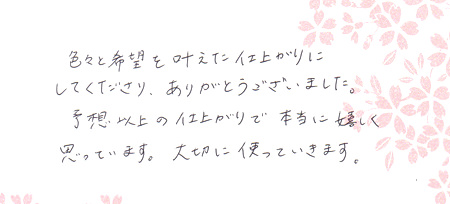 色々と希望を叶えた仕上がりに
してくださり、ありがとうございました。
予想以上の仕上がりで本当に嬉しく
思っています。大切に使っていきます。